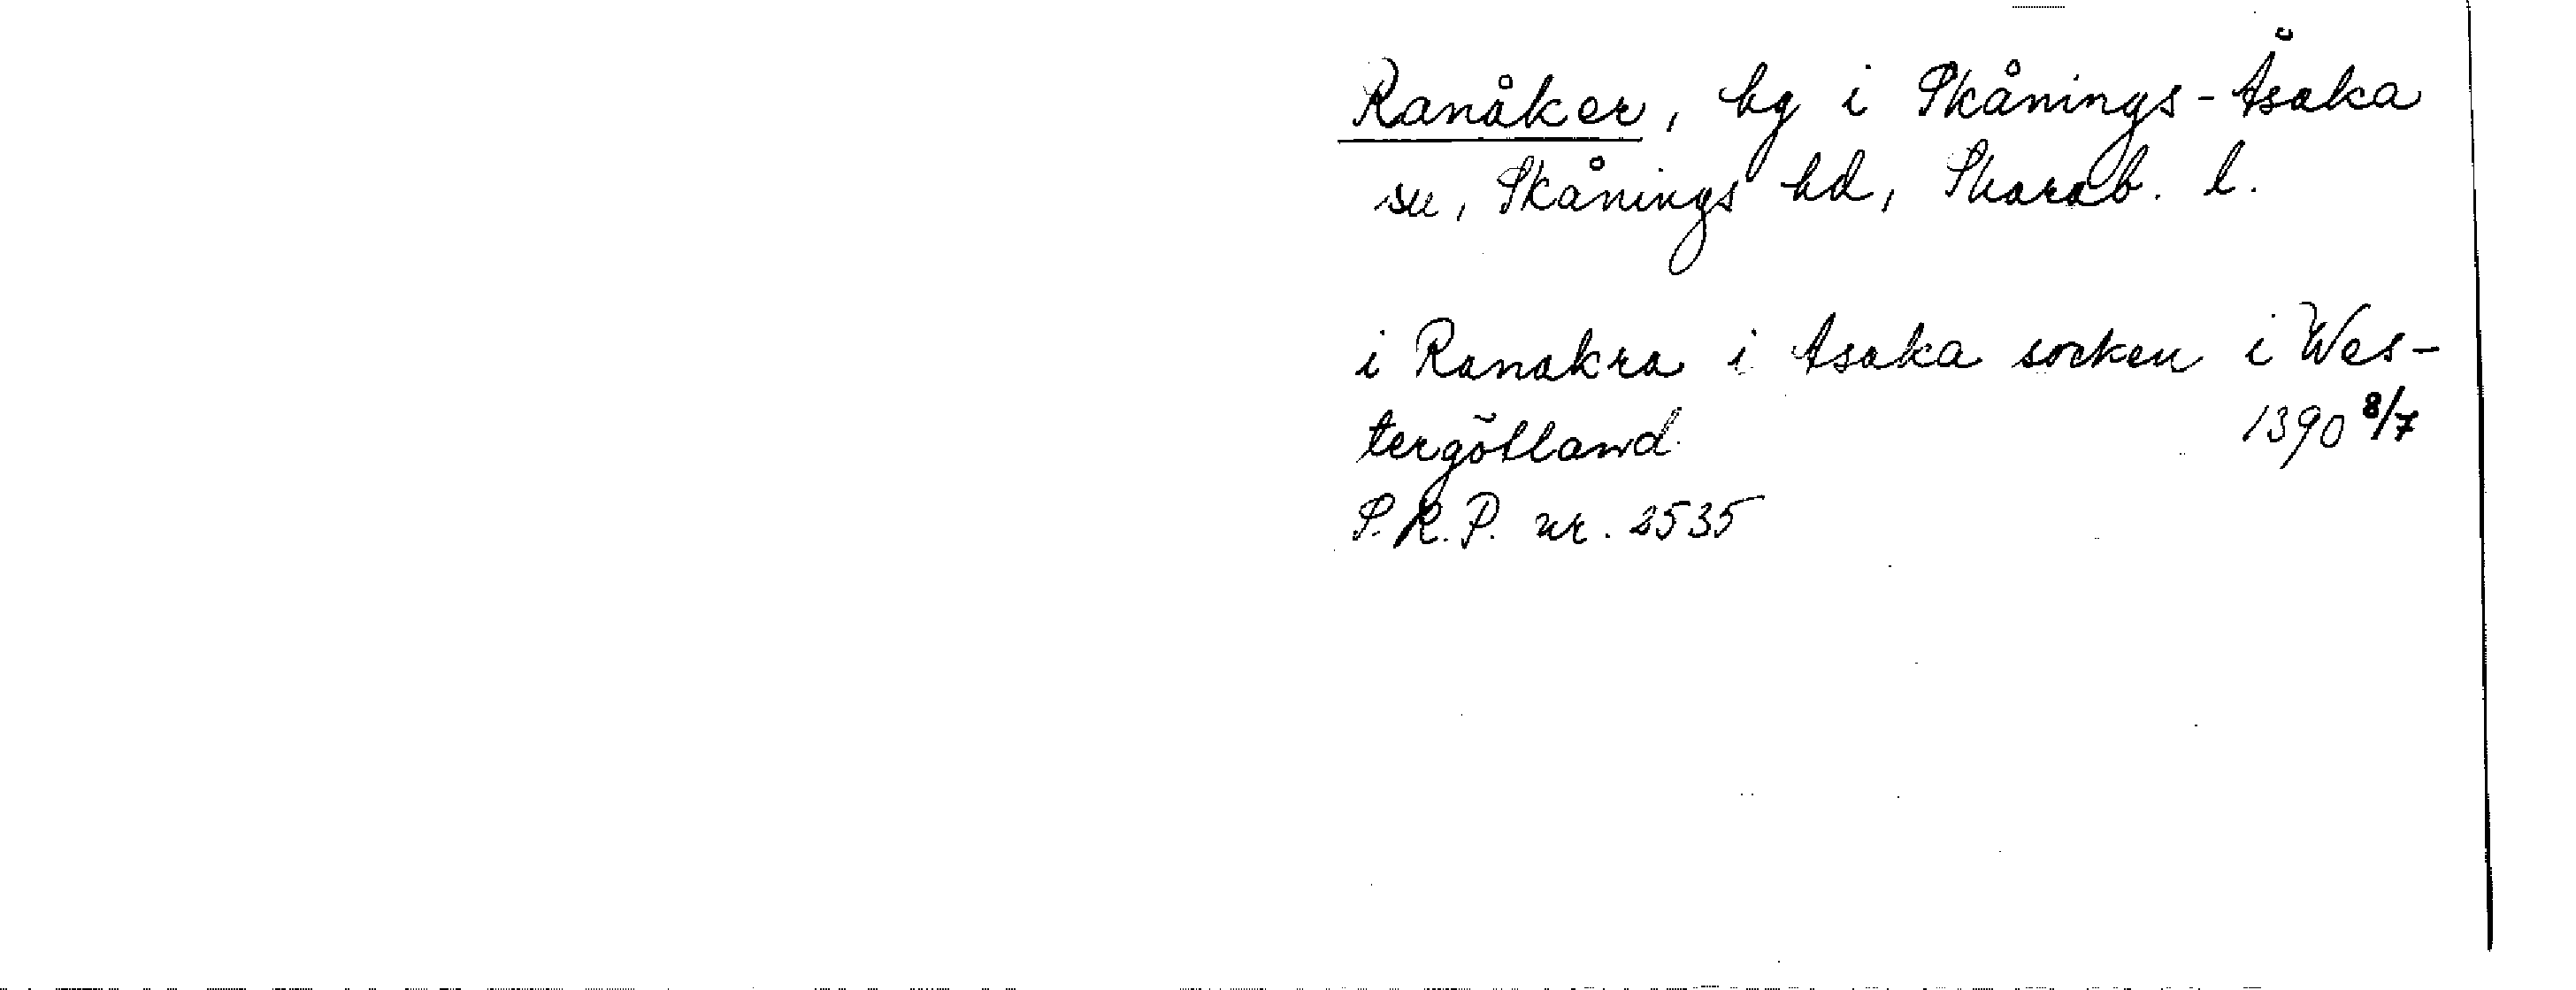 Ranåker, by i Skånings-Åsaka
sn, Skånings hd, Skarab. l.
i Ranakra i Asaka socken i Wes-
tergötland 1390 8/7
S.R.P. nr. 2535